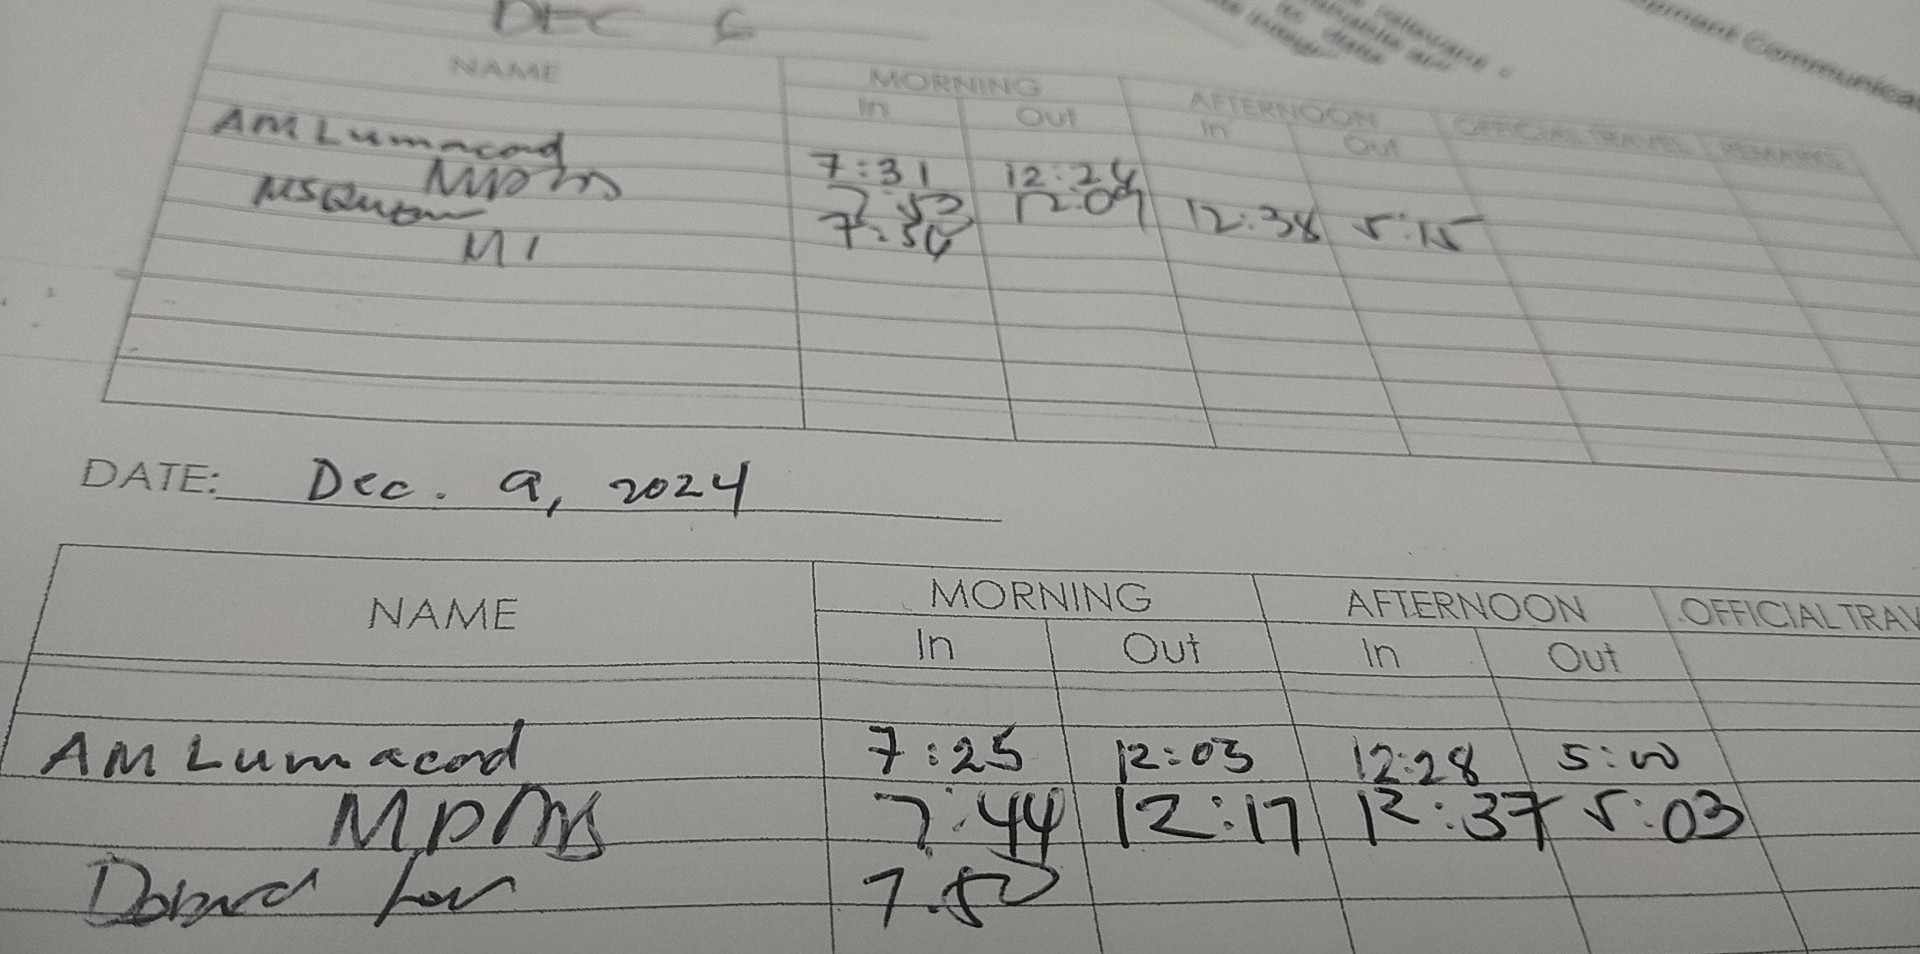 DEC 6
NAME MORNING AFTERNOON OFFICIAL TRAVEL REMARKS
In Out In Out
AM Lumacad 7:31 12:24
MPMS 7:53 12:09 12:38 5:15
7:54
DATE: Dec. 9, 2024
NAME MORNING AFTERNOON OFFICIAL TRAV
In Out In Out
AM Lumacad 7:25 12:03 12:28 5:00
MPMS 7:44 12:17 12:37 5:03
7:50